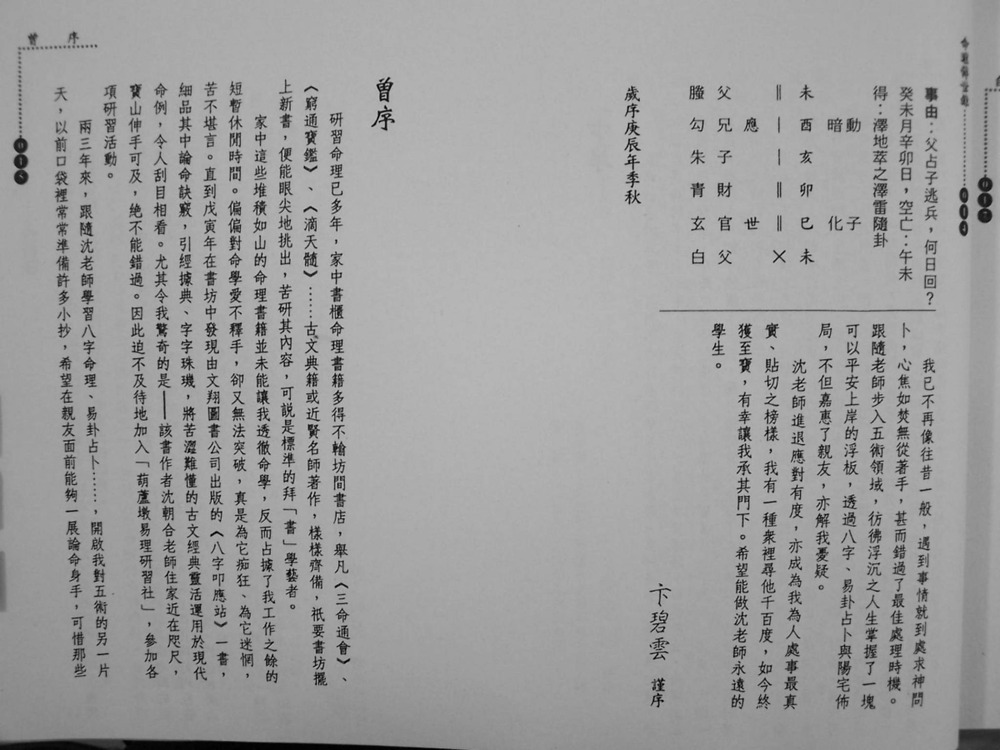 事由：父占子逃兵，何日回？
癸未月辛卯日，空亡：午未
得：澤地萃之澤雷隨卦
動　　　　　子
暗　　　　　化
未　酉　亥　卯　巳　未
∥　∣　∣　∥　∥　✕
應　　　　　世
父　兄　子　財　官　父
螣　勾　朱　青　玄　白
歲序庚辰年季秋
我已不再像往昔一般，遇到事情就到處求神問
卜，心焦如焚無從著手，甚而錯過了最佳處理時機。
跟隨老師步入五術領域，彷彿浮沉之人生掌握了一塊
可以平安上岸的浮板，透過八字、易卦占卜與陽宅佈
局，不但嘉惠了親友，亦解我憂疑。
沈老師進退應對有度，亦成為我為人處事最真
實、貼切之榜樣，我有一種衆裡尋他千百度，如今終
獲至寶，有幸讓我承其門下。希望能做沈老師永遠的
學生。
卞碧雲　謹序
曾序
研習命理已多年，家中書櫃命理書籍多得不輸坊間書店，舉凡〈三命通會〉、
〈窮通寶鑑〉、〈滴天髓〉……古文典籍或近賢名師著作，樣樣齊備，祇要書坊擺
上新書，便能眼尖地挑出，苦研其內容，可說是標準的拜「書」學藝者。
家中這些堆積如山的命理書籍並未能讓我透徹命學，反而占據了我工作之餘的
短暫休閒時間。偏偏對命學愛不釋手，卻又無法突破，真是為它痴狂、為它迷惘，
苦不堪言。直到戊寅年在書坊中發現由文翔圖書公司出版的〈八字叩應站〉一書，
細品其中論命訣竅，引經據典、字字珠璣，將苦澀難懂的古文經典靈活運用於現代
命例，令人刮目相看。尤其令我驚奇的是——該書作者沈朝合老師住家近在咫尺，
寶山伸手可及，絶不能錯過。因此迫不及待地加入「葫蘆墩易理研習社」，參加各
項研習活動。
兩三年來，跟隨沈老師學習八字命理、易卦占卜……，開啟我對五術的另一片
天，以前口袋裡常常準備許多小抄，希望在親友面前能夠一展論命身手，可惜那些
曾　序